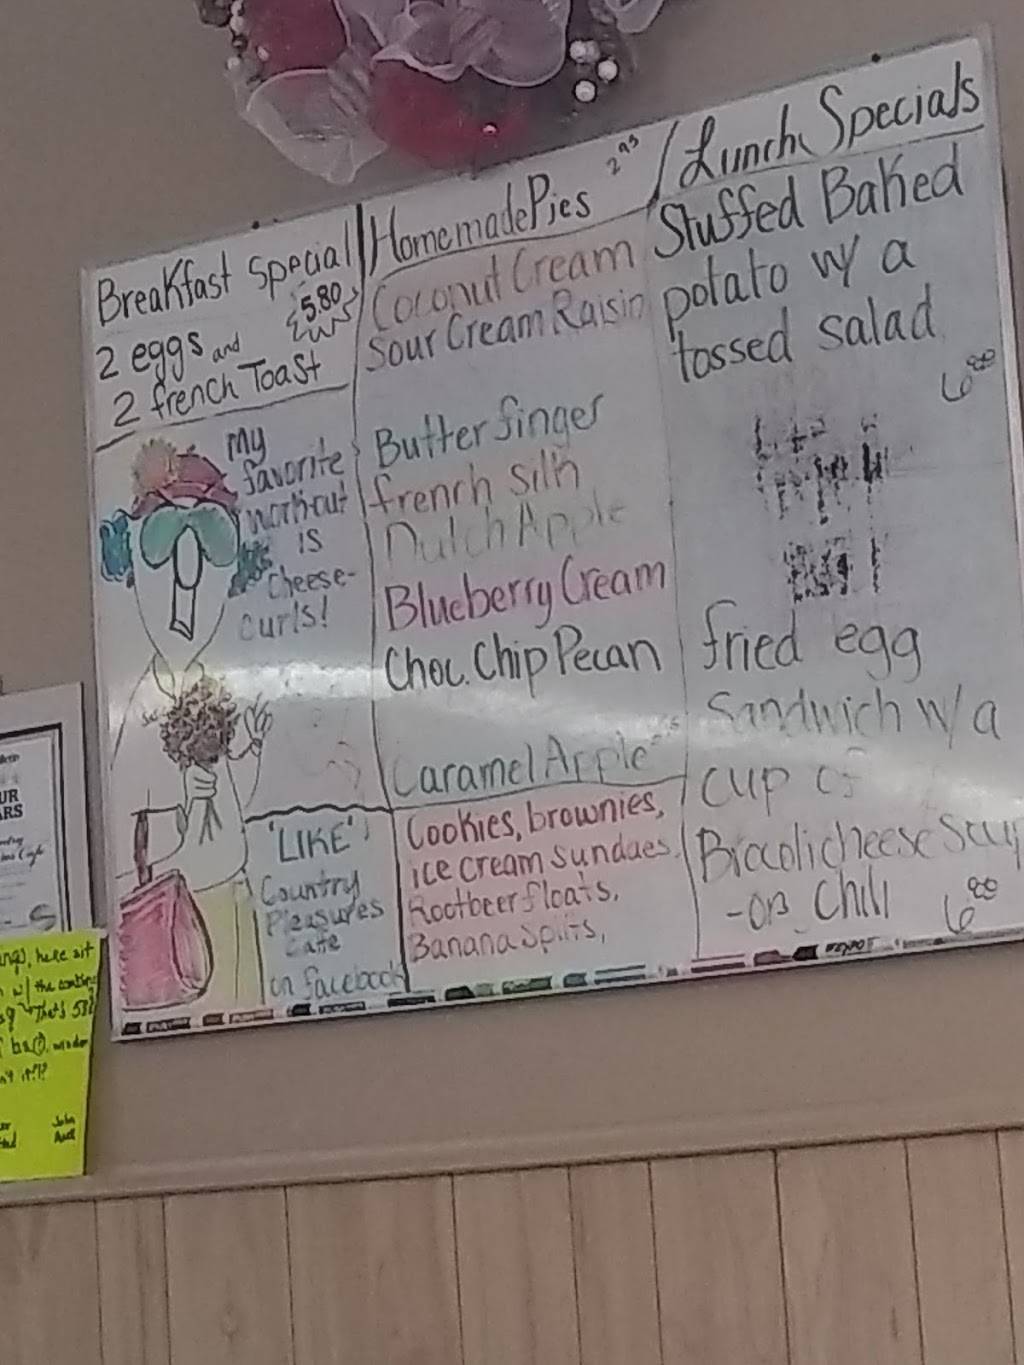 Breakfast Special
5.80
2 eggs and
2 french Toast
My
favorite
workout
is
cheese-
curls!
"LIKE"
Country
Pleasures
Cafe
on facebook
Homemade Pies 2 95
Coconut Cream
Sour Cream Raisin
Butterfinger
french Silk
Dutch Apple
Blueberry Cream
Choc. Chip Pecan
Caramel Apple
Cookies, brownies,
ice cream sundaes.
Rootbeer floats.
Banana Splits,
Lunch Specials
Stuffed Baked
potato w/ a
tossed salad
6
fried egg
Sandwich w/ a
cup of
-OR Chili
6
here sit
John